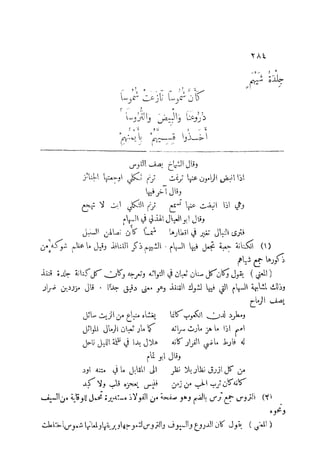 ٢٨٤
جِلْدَةُ شَيْهَمِ
كأنّ شُمُوسًا نَازَعَتْ شُمُوسًا
دُرُوعَنا وَالْبِيضَ وَالتُّرُوسَا
أخَذُوا قِسِيَّهُمْ بِأَيْمُنِهِمْ
وقال الشماخ يصف القوس
اذا انبض الرامون عنها ترنمت ترنم ثكلى اوجعتها الجنائز
وقال آخر فيها
وهي اذا انبضت عنها تسمع ترنم الثكلى ابت لا تهجع
وقال ابو العيال الهذلي في السهام
فترى النبال تعير في اقطارها شمسا كأن نصالهن السنبل
(١) الكنانة جعبة تجعل فيها السهام . الشيهم ذكر القنافذ وقيل ما عظم شوكه من
ذكورها جمع شياهم
(المعنى) يقول وكأن كل سنان ثعبان في التوائه وتعرجه وكأن كل كنانة جلدة قنفذ
وذلك لمشابهة السهام التي فيها لشوك القنفذ وهو معنى دقيق جدًا . قال مزرد بن ضرار
يصف الرماح
ومطرد لدن الكعوب كأنما يغشاه منباع من الزيت سائل
اصم اذا ما هز مارت سراته كما مار ثعبان الرمال الموائل
له فارط ماضي الغرار كأنه هلال بدا في ظلمة الليل ناحل
وقال ابو تمام
من كل ازرق نظار بلا نظر الى المقاتل ما في متنه اود
كأنه كان ترب الحب من زمن فليس يعجزه قلب ولا كبد
(٢) التروس جمع ترس بالضم وهو صفحة من الفولاذ مستديرة تحمل للوقاية من السيف
ونحوه
(المعنى) يقول كأن الدروع والسيوف والتروس لتموجها وبريقها ولمعانها شموس اختلطت